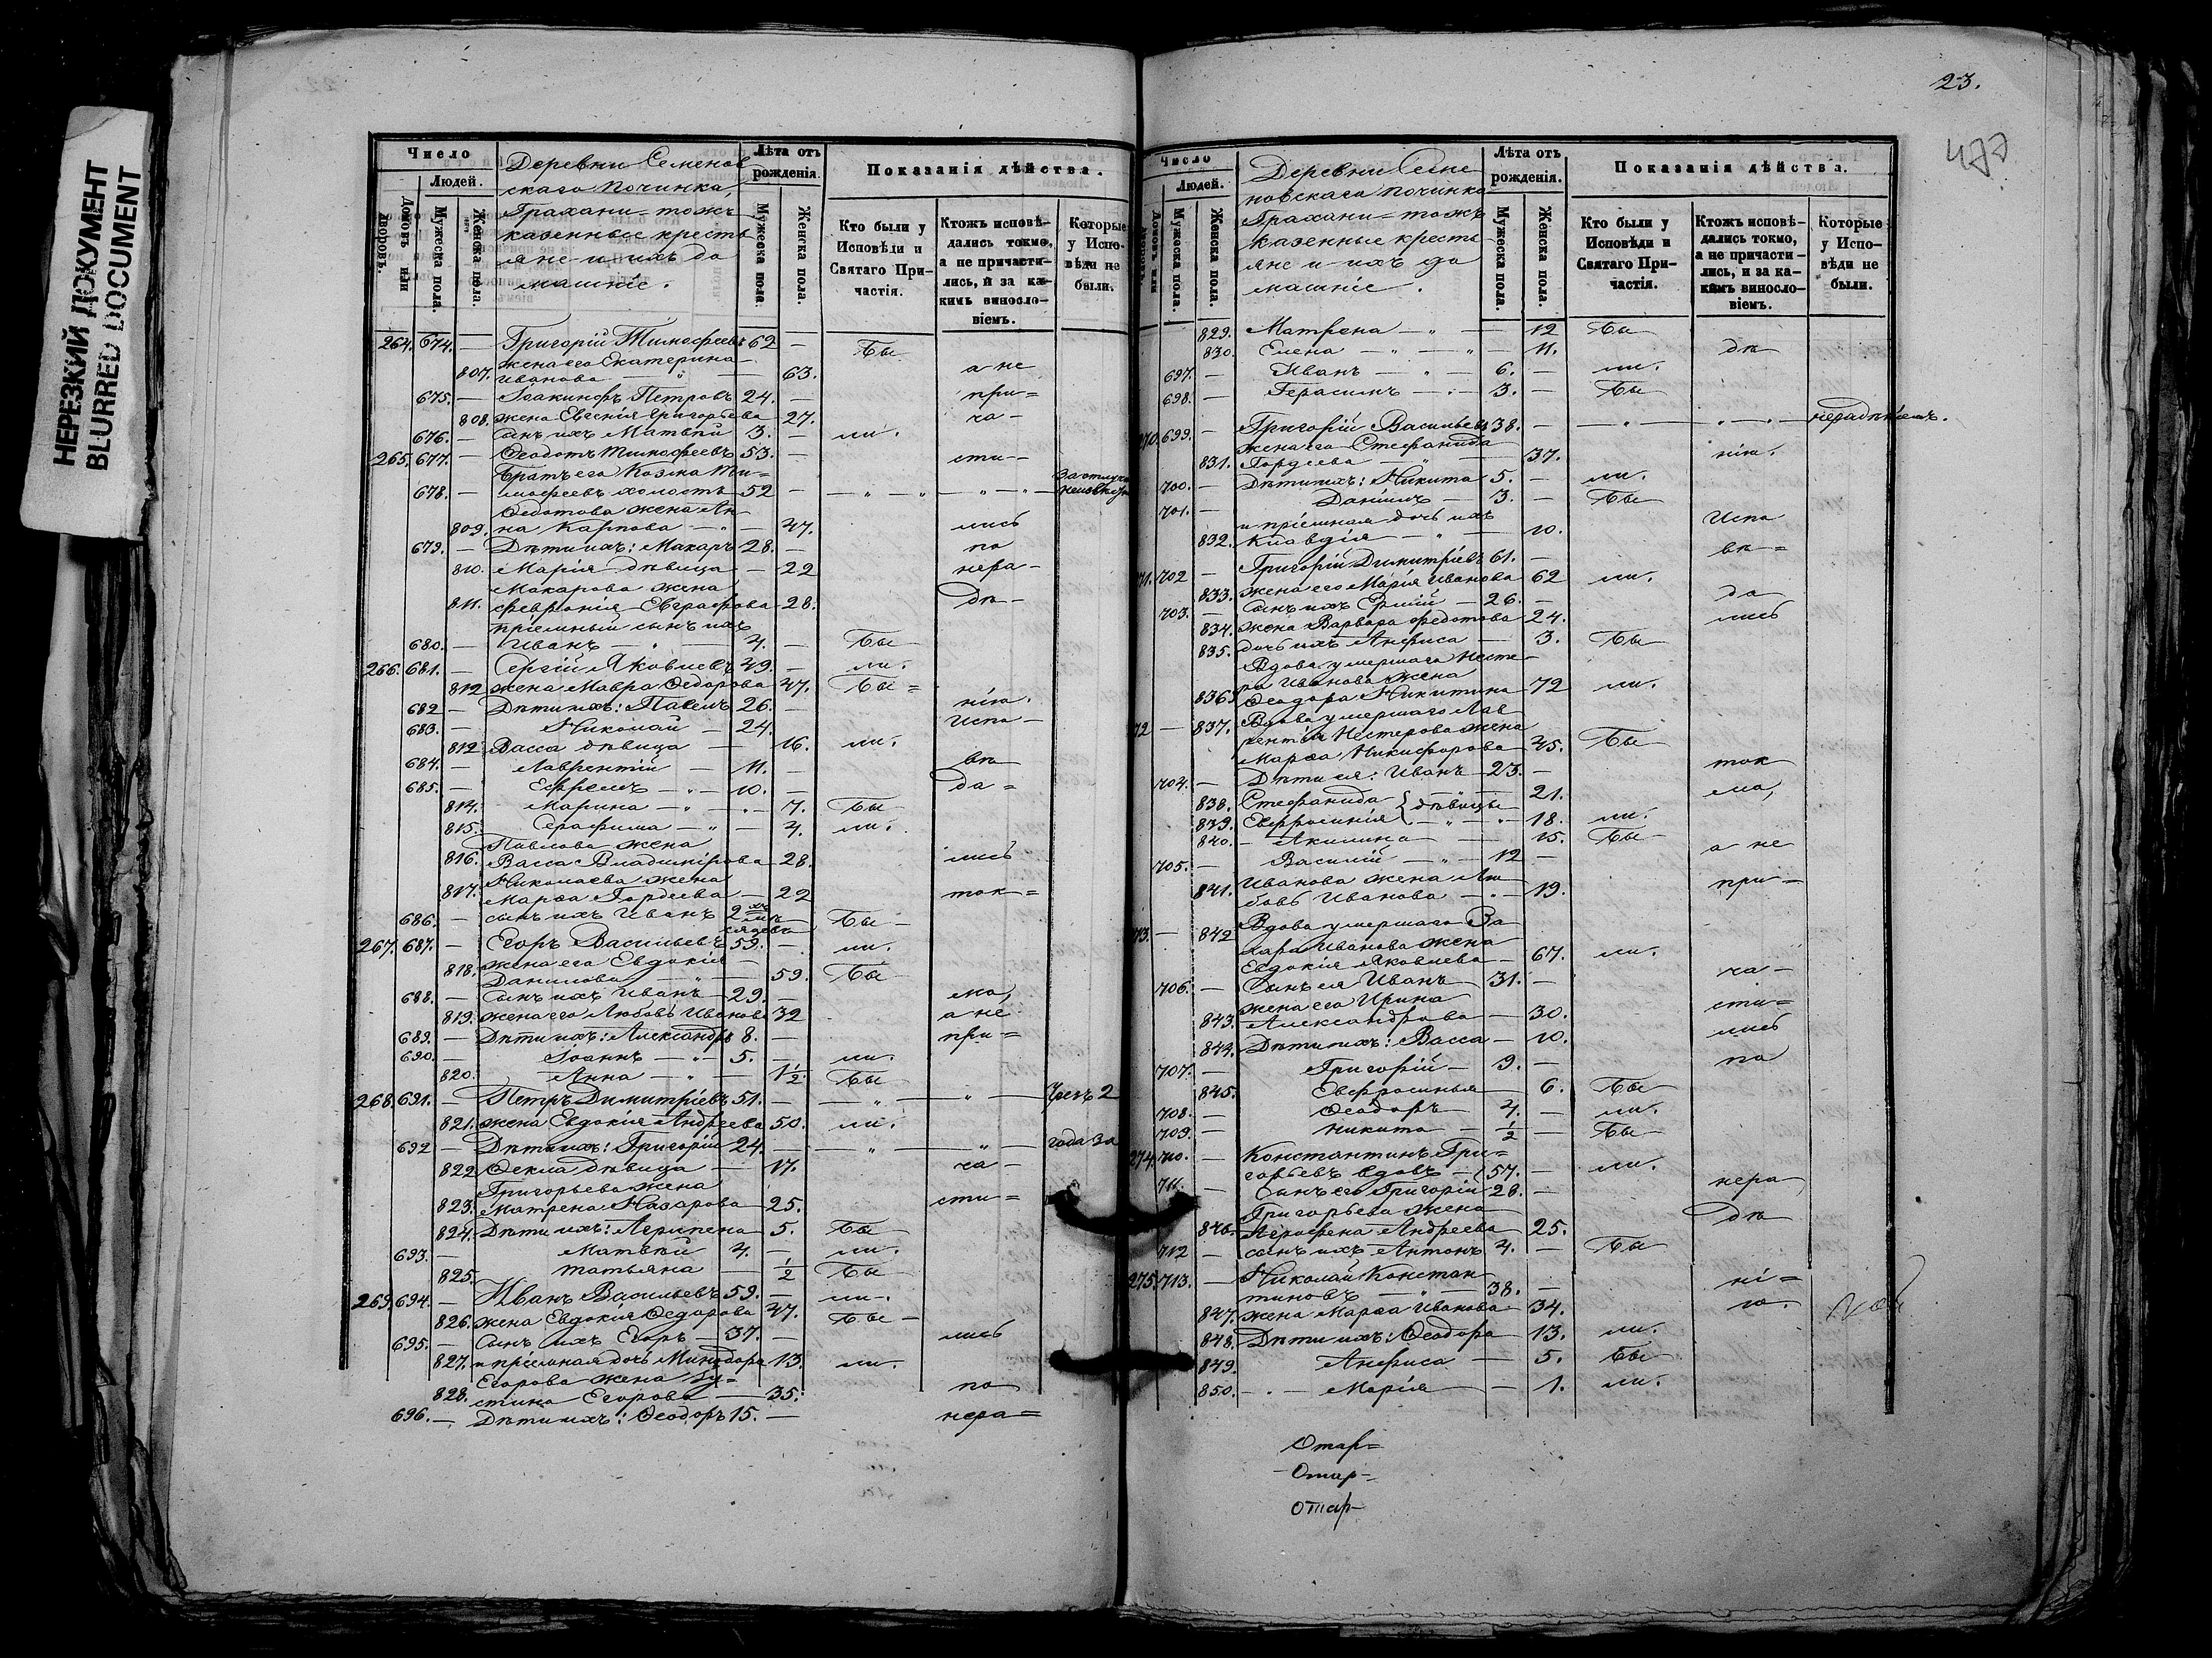 НЕРЕЗКИЙ ДОКУМЕНТ
BLURRED DOCUMENT
Число
Людей.
Домовъ или дворовъ.
Мужеска пола.
Женска пола.
Деревни Семенов
скаго починка,
Грахани-тожъ
казенные кресть
яне и ихъ до
машніе.
Лѣта отъ рожденія.
Мужеска пола.
Женска пола.
Показанія дѣйства.
Кто были у Исповѣди и Святаго Причастія.
Ктожъ исповѣдались токмо, а не причастились, и за какимъ винословіемъ.
Которые у Исповѣди не были.
264. 674. — Григорій Тимофеевъ 62 —
Бы
жена его Екатерина
807. Иванова — " — 63. а не
675. — Іоакинфъ Петровъ 24. — при=
808. жена Евгенія Григорьева 27. ча-
676. — сынъ ихъ Матвѣй 3. — ли.
265. 677. — Ѳеодотъ Тимофеевъ 53. — сти-
Братъ его Козма Ти=
678. — мофеевъ холостъ 52 — — " — " — " — "
Ѳедотова жена Ан-
809. на Карпова — " — 47. лись
679. — Дѣти ихъ: Макаръ 28. — по
810. Марія дѣвица — 22 нера-
Макарова жена
811. Февронія Евграфова 28. дѣ-
пріемный сынъ ихъ
680. — Иванъ — " — 4. Бы
266. 681. — Сергій Яковлевъ 49. — ли.
812 жена Мавра Ѳедорова 47. Бы=
682 — Дѣти ихъ: Павелъ 26. — нію.
683. — Николай — 24. Испо-
812 Васса дѣвица — 16. ли.
684. — Лаврентій — 11. — вѣ
685. — Ефремъ — " — 10. — да=
814. Марина — " — 7. Бы
815. Серафима — " — 4. ли.
Павлова жена
816. Васса Владимірова 28. лись
Николаева жена
817. Марѳа Гордеева — 22 ток=
686. — сынъ ихъ Иванъ 2 Бы-
267. 687. — Егоръ Васильевъ 59. — ли.
жена его Евдокія
818. Данилова — " — 59. Бы
688. — Сынъ ихъ Иванъ 29. — мо,
819. жена его Любовь Иванова 32 а не
689. — Дѣти ихъ: Александръ 8. — при=
690. — Іоаннъ — " — 5. — ли.
820. Анна — " — 1 1/2. Бы
268. 691. — Петръ Димитріевъ 51. — — " — " — Чрезъ 2
821. жена Евдокія Андреева 50. ли.
692 — Дѣти ихъ: Григорій 24. — — " — " — года за
822 Ѳекла дѣвица — 17. ча-
Григорьева жена
823. Матрена Назарова 25. сти=
824. Дѣти ихъ: Агрипена 5. Бы
693. — Матвѣй 4. — ли.
825. Татьяна — 1/2 Бы
269. 694. — Иванъ Васильевъ 59. — ли.
826. жена Евдокія Ѳедорова 47. Бы-
695. — Сынъ ихъ Егоръ — 37. — лись
827. и пріемная дочь Минодора 13. ли.
Егорова жена Іу=
828. стина Егорова — 35. по
696. — Дѣти ихъ: Ѳеодоръ 15. — нера=
23.
477
Число
Людей.
Домовъ или дворовъ.
Мужеска пола.
Женска пола.
Деревни Семе
новскаго починка
Грахани-тожъ
казенные кресть-
яне и ихъ до
машніе.
Лѣта отъ рожденія.
Мужеска пола.
Женска пола.
Показанія дѣйства.
Кто были у Исповѣди и Святаго Причастія.
Ктожъ исповѣдались токмо, а не причастились, и за какимъ винословіемъ.
Которые у Исповѣди не были.
829. Матрена — " — 12 Бы
830. Елена — " — " — 11. дѣ
697. — Иванъ — " — 6. — ли.
698. — Герасимъ — " — 3. — Бы
699. — Григорій Васильевъ 38. — — " — " — " — нерадѣніемъ.
жена его Стефанида
831. Гордеева — " — 37. нію.
700. — Дѣти ихъ: Никита 5. — ли.
701. — Даніилъ — 3. — Бы
и пріемная дочь ихъ
832. Клавдія — " — 10. Испо
71. 702 — Григорій Димитріевъ 61. — вѣ=
833. жена его Марія Иванова 62 ли.
703. — сынъ ихъ — 26. — да
834. жена Варвара Федотова 24. лись
835. дочь ихъ Анфиса — 3. Бы
Вдова умершаго Несте-
ра Иванова жена
836. Ѳеодора Никитина 72 ли.
72 — 837. Вдова умершаго Лав
рентія Нестерова жена
Марѳа Никифорова 45. Бы
704. — Дѣти ея: Иванъ 23. — ток
838. Стефанида } дѣвицы 21. мо,
839. Евфросинія } — " — 18. ли.
840. — Акилина — 15. Бы
705. — Василій — " — 12 — а не
Иванова жена Лю
841. бовь Иванова — " — 19. при=
73. — 842 Вдова умершаго За
хара Иванова жена
Евдокія Яковлева — 67. ли.
706. — Сынъ ея Иванъ — 31. — ча-
жена его Ирина
843. Александрова — 30. сти=
844. Дѣти ихъ: Васса — 10. лись
707. — Григорій — 9. — по
845. Евфросинья — 6. Бы
708. — Ѳеодоръ — 4. — ли.
709. — Никита — 1/2 — Бы
274. 710. — Константинъ Гри=
горьевъ вдовъ — 57. — ли.
711. — Сынъ его Григорій 28. — нера
Григорьева жена
846 Агрофена Андреева 25. дѣ
712 — сынъ ихъ Антонъ 4. — Бы
275. 713. — Николай Констан
тиновъ — " — 38. — ні=
847. жена Марѳа Иванова 34. ю.
848. Дѣти ихъ: Ѳеодора 13. ли.
849. Анфиса — 5. Бы
850. — Марія — 1. ли.
Отар=
Отар-
отар-